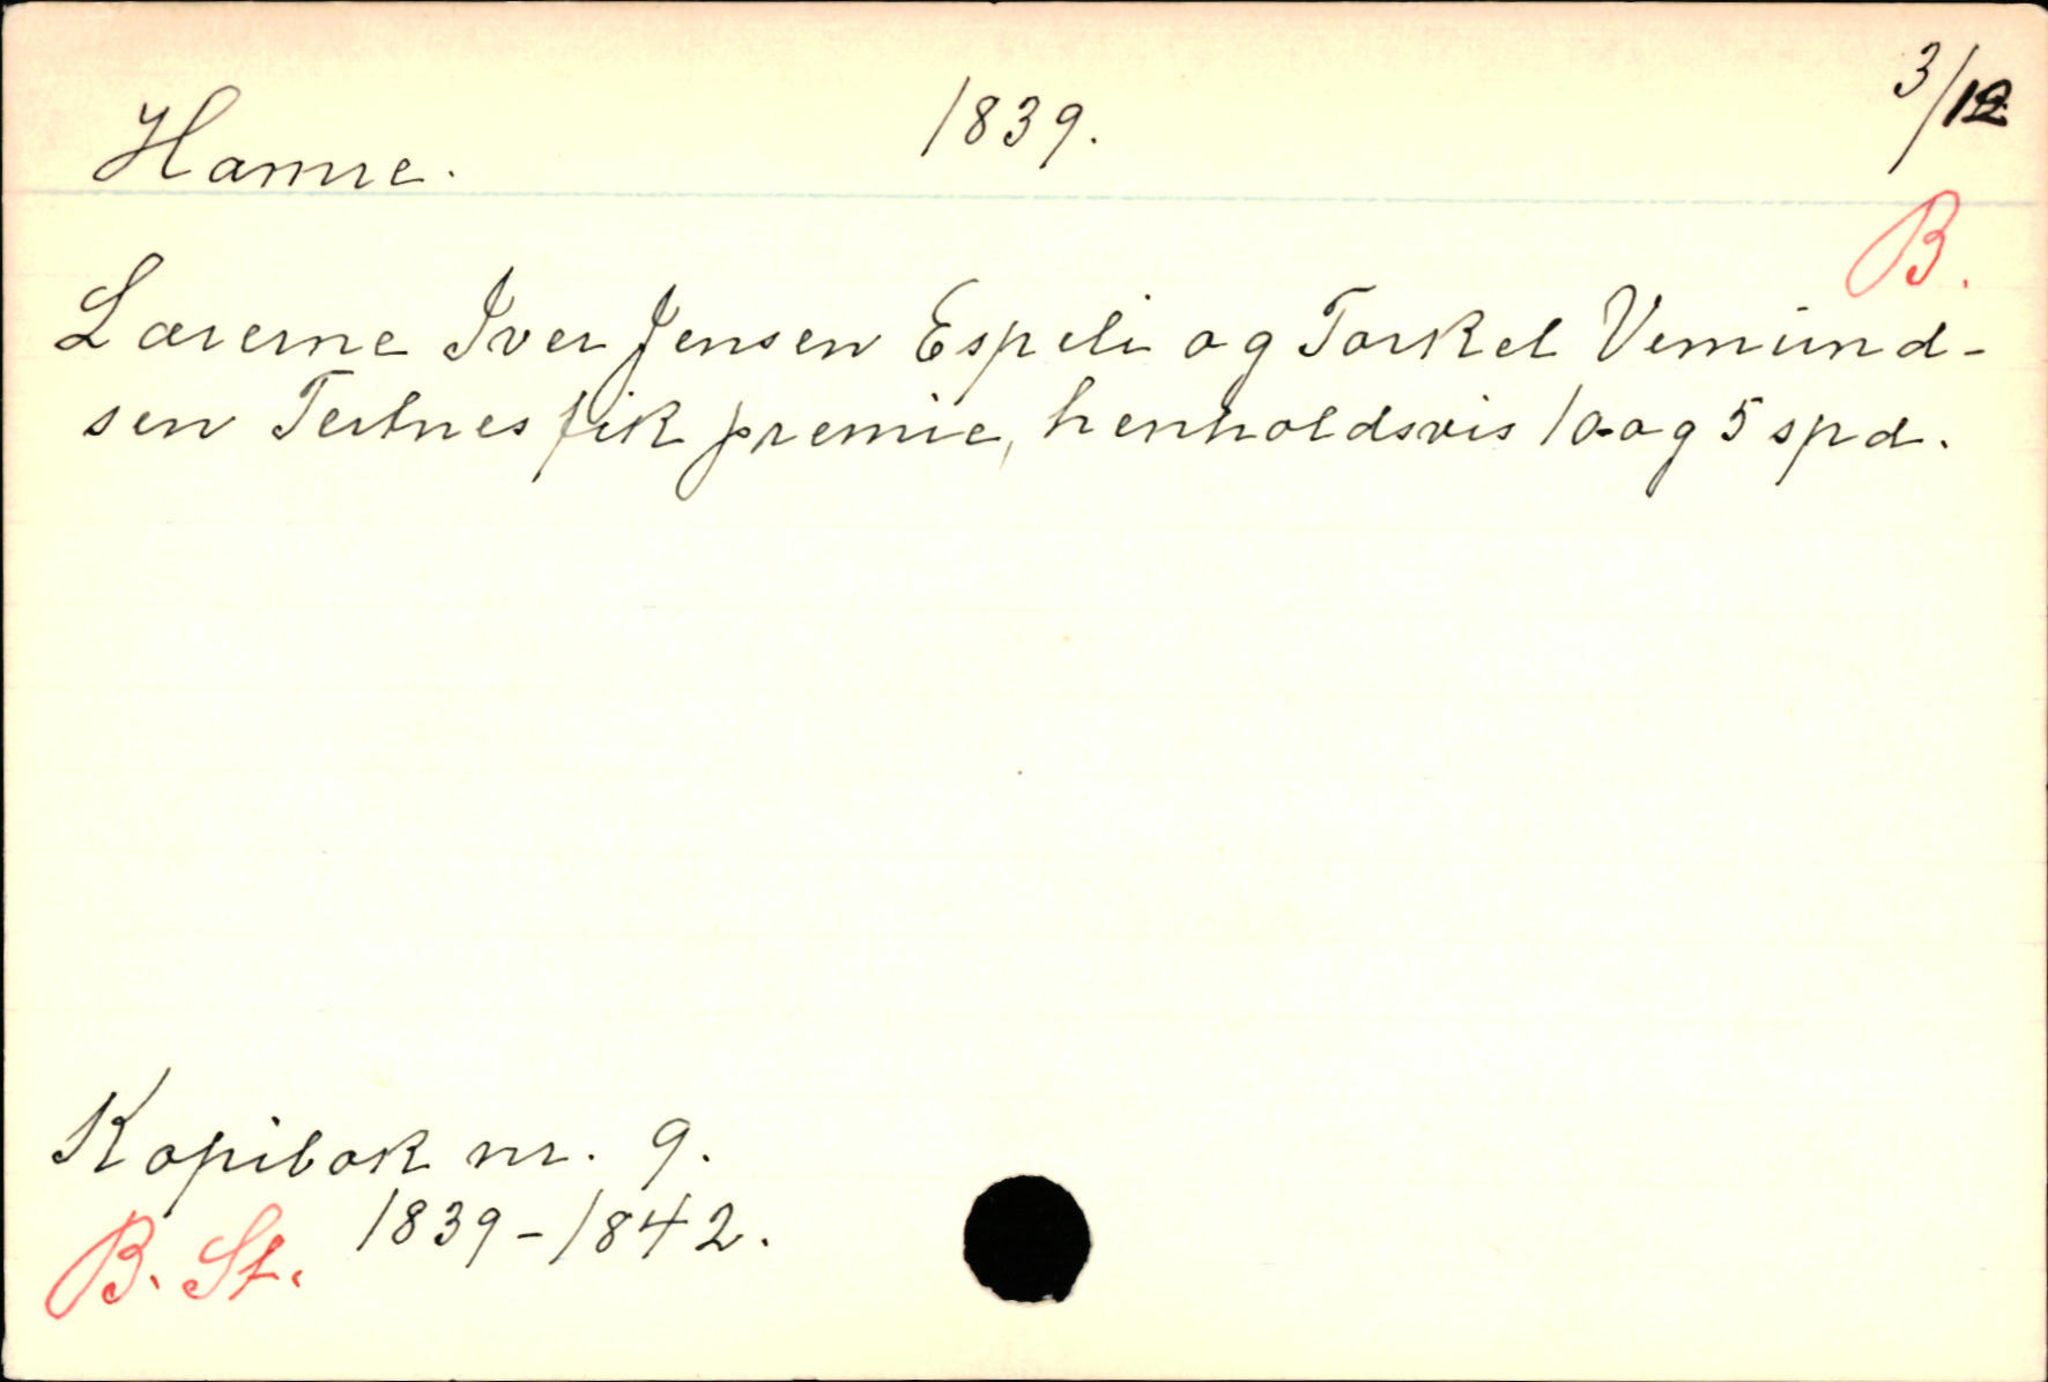 Hamre. 1839. 3/12
B.
Lærerne Iver Jensen Espeli og Torkel Vemund-
sen Tertnes fik premie, henholdsvis 10 og 5 spd.
Kopibok nr. 9.
1839-1842.
B. St.